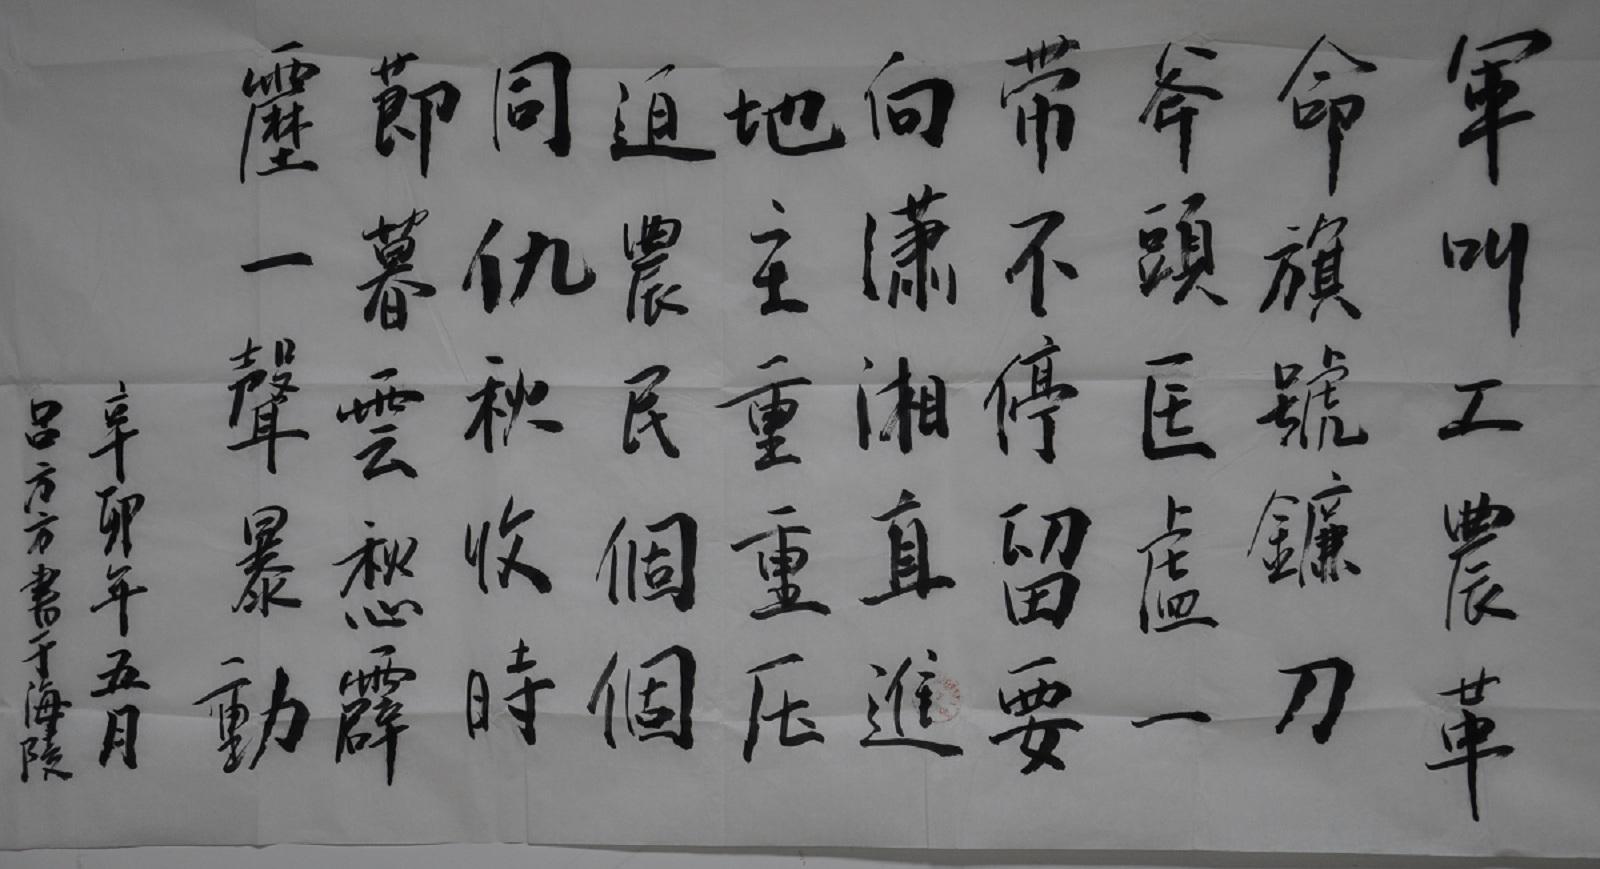 軍叫工農革
命旗號鐮刀
斧頭匡盧一
带不停留要
向潇湘直進
地主重重压
迫農民個個
同仇秋收時
節暮雲愁霹
靂一聲暴動
辛卯年五月
吕方方書于海陵